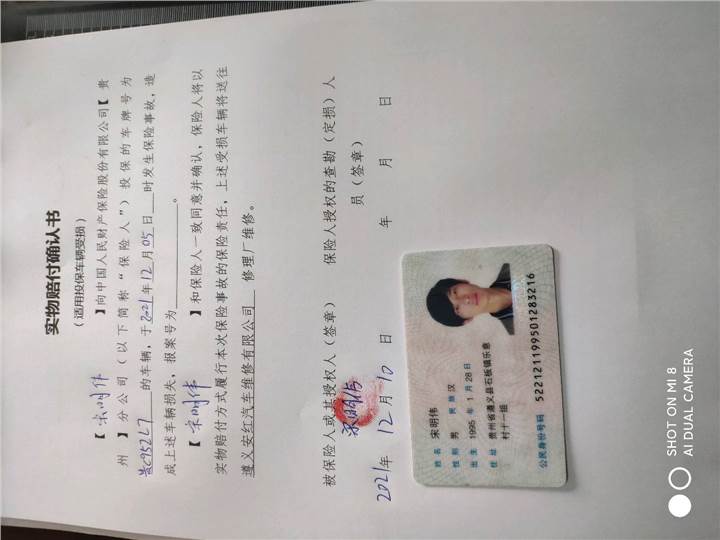 实物赔付确认书
（适用投保车辆受损）
【 宋明伟 】向中国人民财产保险股份有限公司【 贵
州 】 分公司 （以下简称“保险人”）投保的车牌号为
贵C952L7 的车辆，于2021年12月05日 时发生保险事故，造
成上述车辆损失，报案号为 。
【 宋明伟 】和保险人一致同意并确认，保险人将以
实物赔付方式履行本次保险事故的保险责任，上述受损车辆将送往
遵义安红汽车维修有限公司 修理厂维修。
被保险人或其授权人（签章） 保险人授权的查勘（定损）人
员（签章）
宋明伟
2021年 12月10日 年 月 日
姓名 宋明伟
性别 男 民族 汉
出生 1995 年 1 月 28 日
住址 贵州省遵义县石板镇乐意
村十一组
公民身份号码 522121199501283216
SHOT ON MI 8
AI DUAL CAMERA